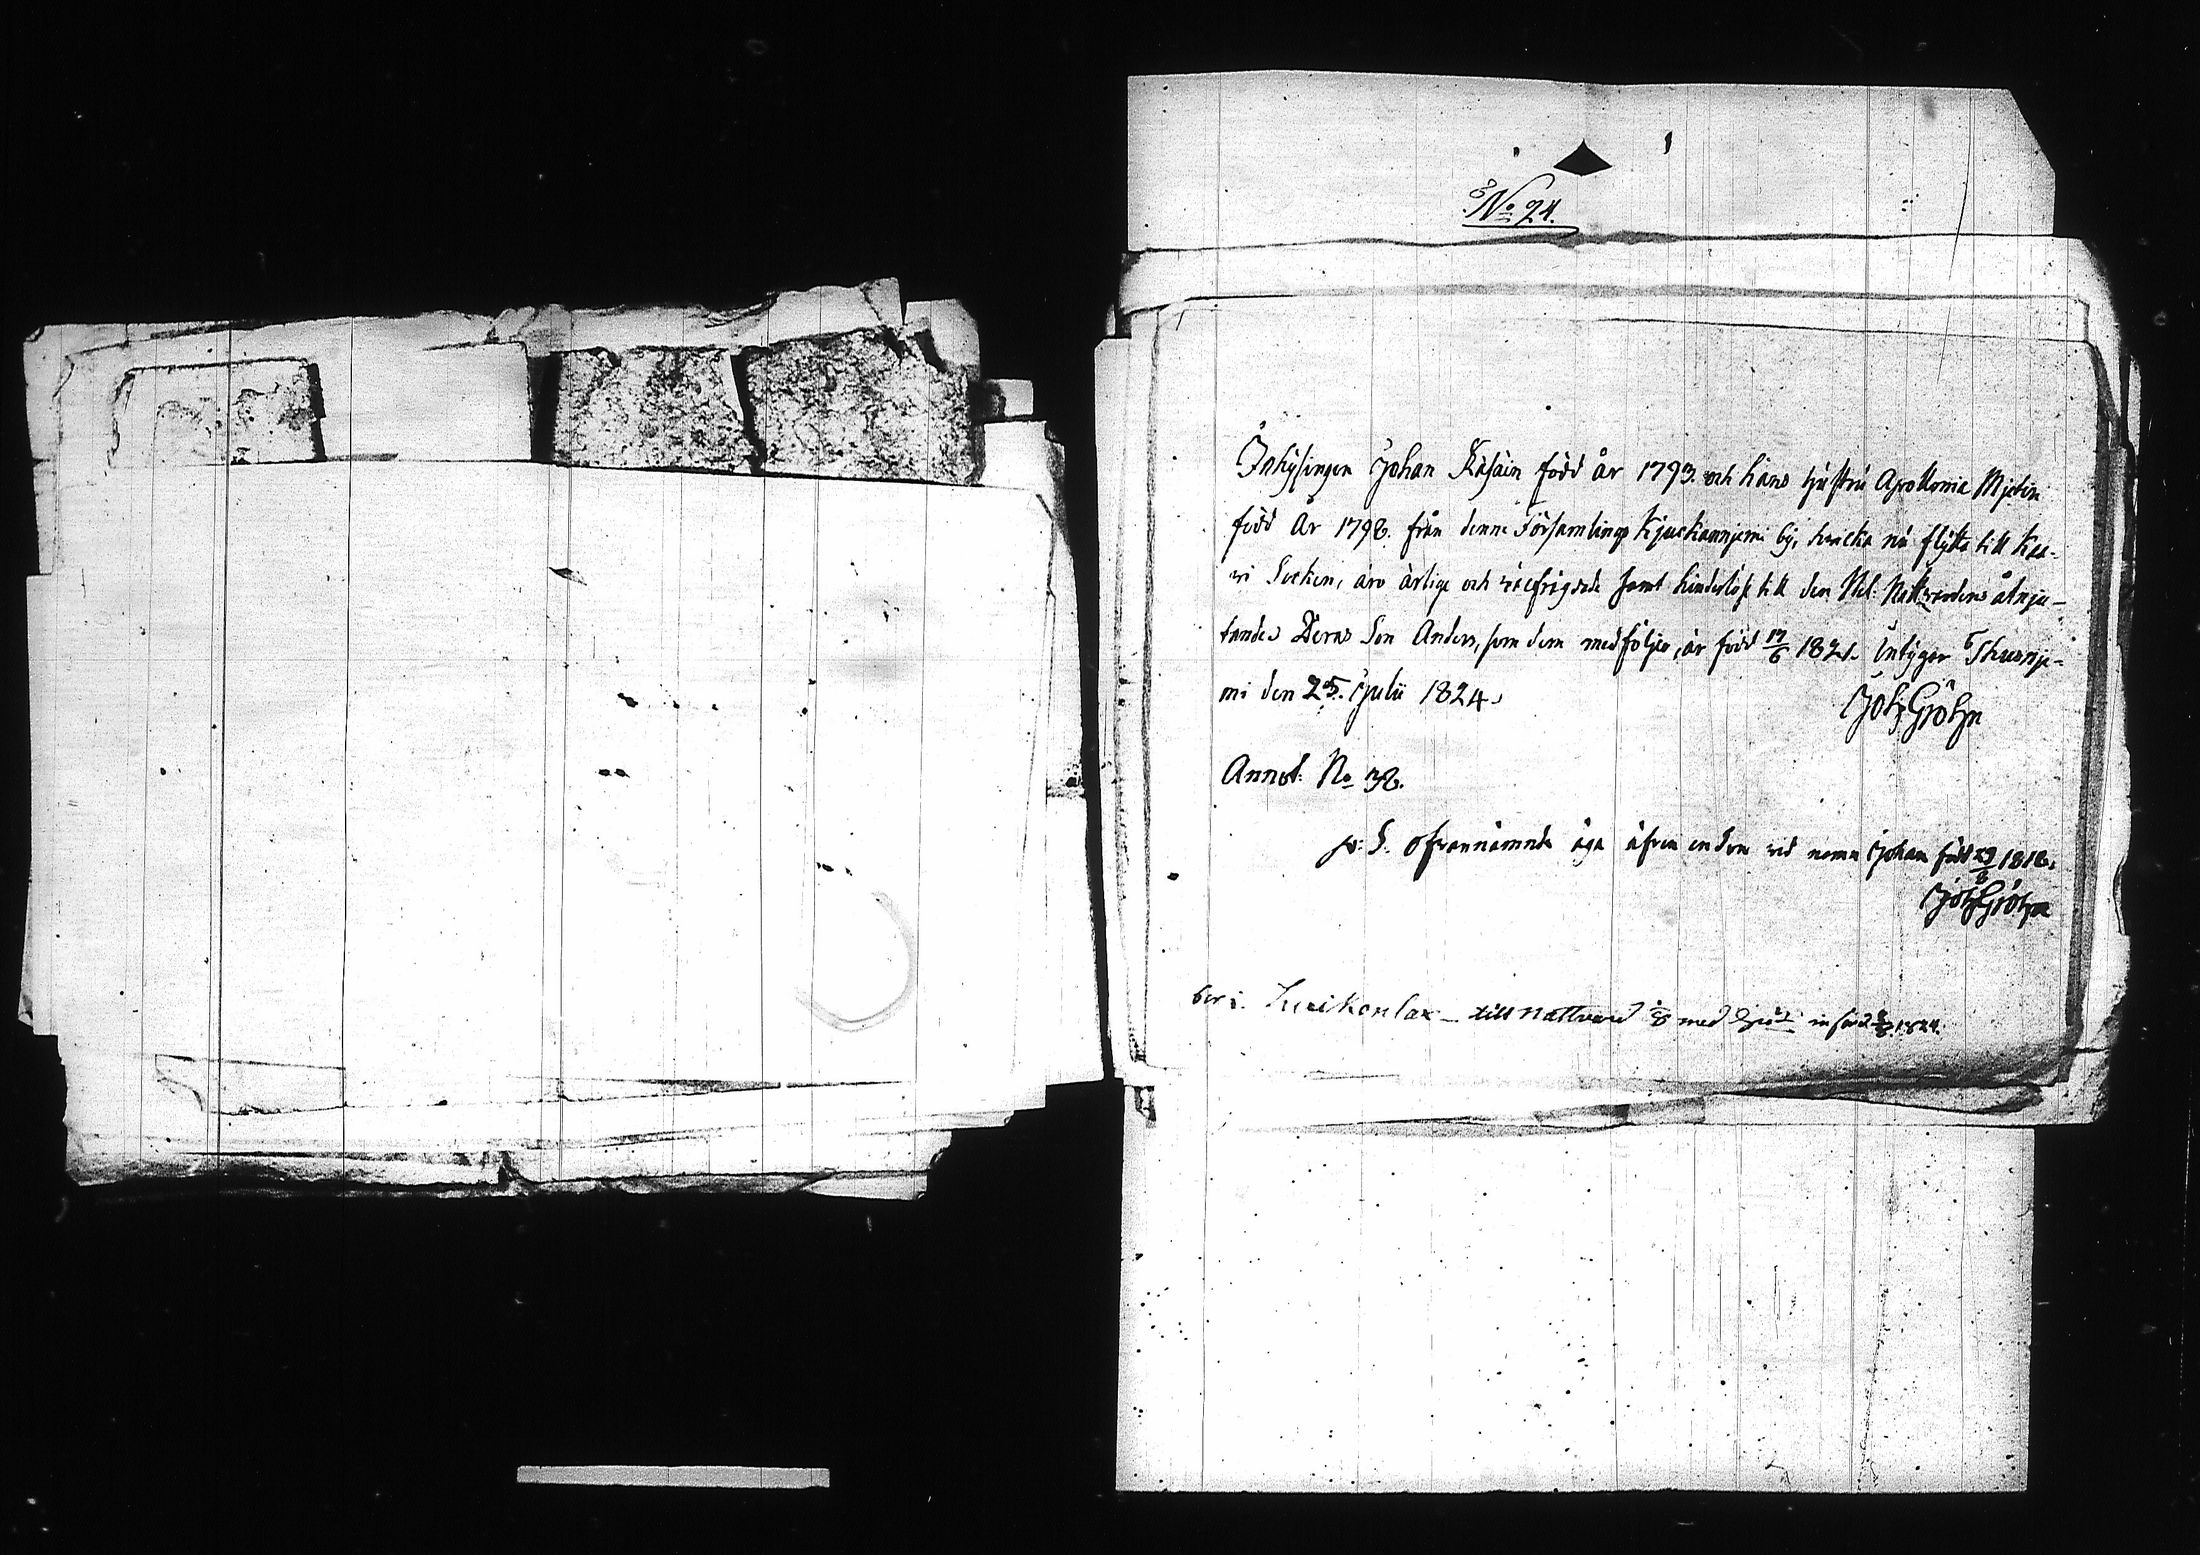 No 24.
Inhysingen Johan Räsäin född år 1793. och hans hustru Apollonia Mjetin
född År 1798. från denne Församlings Kjuckannjemi by, hvilka nu flytta till Kaa-
vi Socken, äro ärlige och välfrägdade samt hinderlöse till den Hel: Nattvardens åtnju-
tande. Deras Son Anders, som dem medföljer, är född 17/6 1821. Intygar Thusnje-
mi den 25. Julii 1824.
Joh. Gröhn
Annot: No 38.
P: S. ofvannämnde äga äfven en Son vid namn Johan född 29/8 1818.
Joh. Gröhn
bor i - till nattvard med införd 1824.